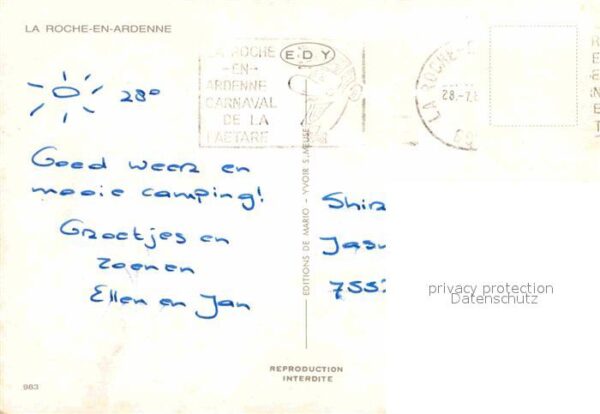 LA ROCHE-EN-ARDENNE
LA ROCHE
-EN-
ARDENNE
CARNAVAL
DE LA
LAETARE
EDY
LA ROCHE-
28.-7.
28°
Goed weer en
mooie camping!
Groetjes en
zoenen
Ellen en Jan
EDITIONS DE MARIO - YVOIR S/MEUSE
Shir
Jas
755
privacy protection
Datenschutz
REPRODUCTION
INTERDITE
983